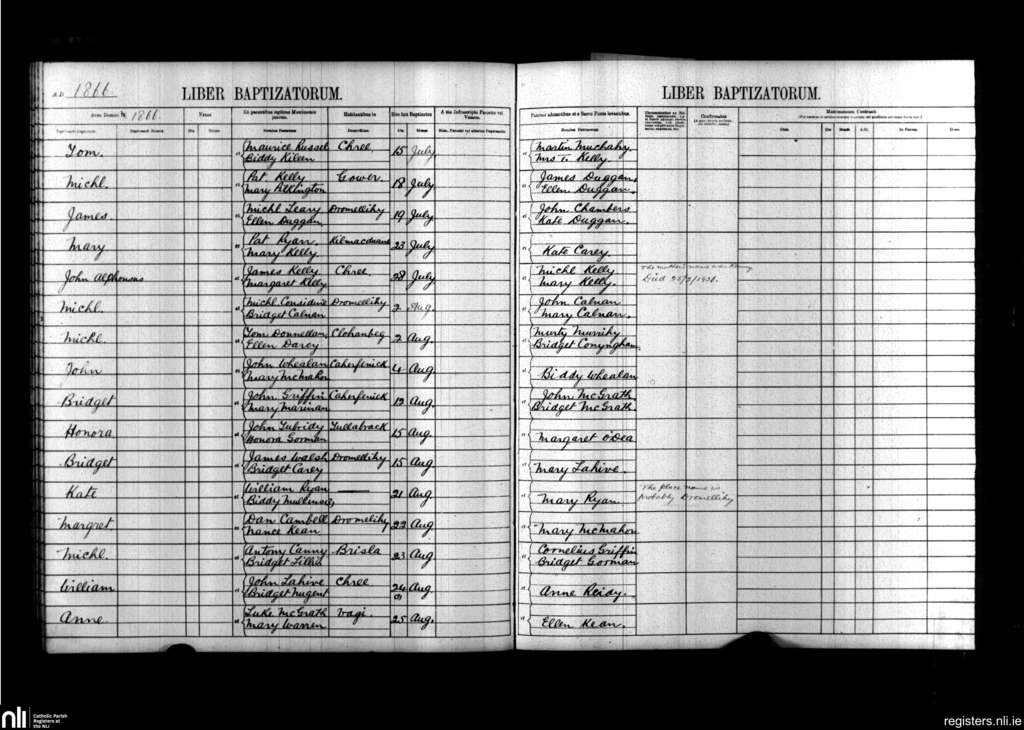 A.D. 1866.
LIBER BAPTIZATORUM.
Anno Domini 1866.
Natus
Ex parentibus legitimo Matrimonio junctis.
Habitantibus in
Die
Mensis
Nomina Parentum
Tom.
Maurice Russel
Biddy Kileen
Chree
15 July
Michl.
Pat Kelly
Mary Alkington
Gower.
18 July
James.
Michl Leary
Ellen Duggan
Dromellihy
19 July
Mary
Pat Ryan.
Mary Kelly.
Kilmacduane
23 July
John Alphonsus
James Kelly
Margaret Kelly
Chree.
28 July
Michl.
Michl. Considine
Bridget Calnan
Dromellihy
2 Aug.
Michl.
Tom Donnellan,
Ellen Darcy
Clohanbeg
2 Aug.
John
John Whealan
Mary McMahon
Caherfenick
4 Aug.
Bridget
John Griffin
Mary Marinan
Caherfenick
12 Aug.
Honora
John Tubridy
Honora Gorman
Tullabrack
15 Aug.
Bridget
James Walsh
Bridget Carey
Dromellihy
15 Aug
Kate
William Ryan
21 Aug
Margret
Dan Cambell
Nance Kean
Dromelihy
22 Aug
Michl.
Antony Canny
Bridget Lillis
Brisla
23 Aug
William
John Lahive
Bridget Nugent
Chree
24 Aug
Anne.
Luke McGrath
Mary Warren
25 Aug.
LIBER BAPTIZATORUM.
Confirmatus
Matrimonium Contraxit
Martin
Mrs T. Kelly.
James Duggan,
Ellen Duggan.
John Chambers
Kate Duggan.
Kate Carey
Michl Kelly
Mary Kelly.
The mother's name was
Died 25/3/1931.
John Calnan
Mary Calnan.
Murty Murrihy
Bridget Conyngham
Biddy Whealan
John McGrath
Bridget McGrath
Margaret O'Dea
Mary Lahive.
Mary Ryan
The place name is
probably Dromellihy
Mary McMahon
Cornelius Griffin
Bridget Gorman
Anne Reidy.
Ellen Kean.
nli
Catholic Parish
Registers at
the NLI
registers.nli.ie